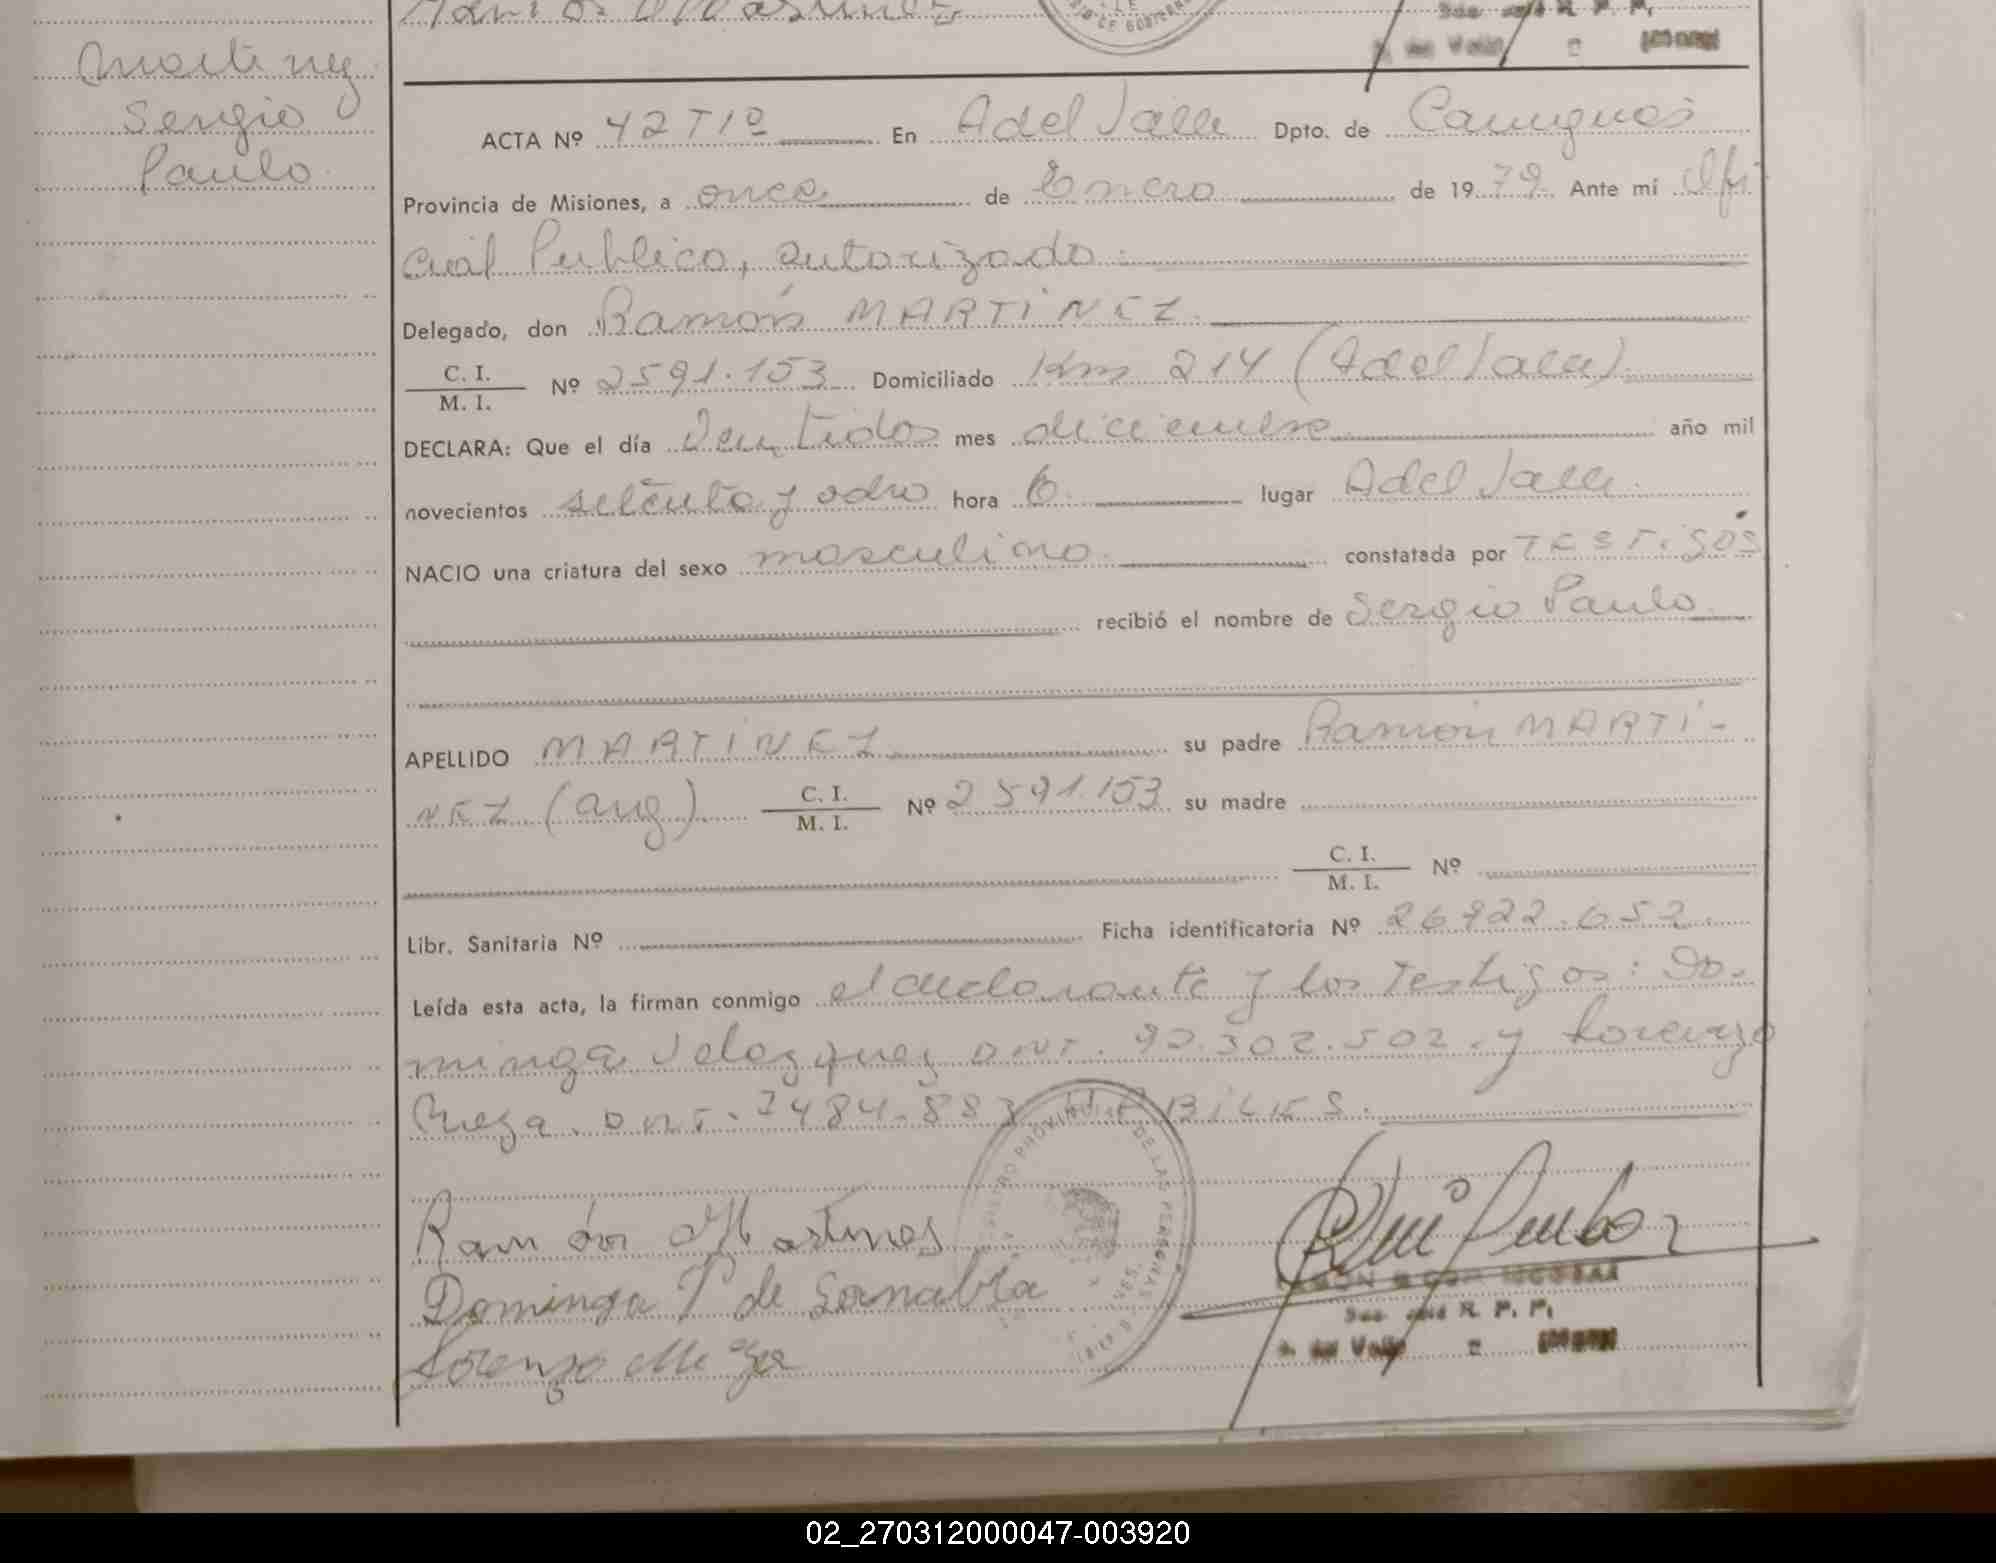 Martinez
Sergio
Paulo
ACTA Nº 42 Tº 1º En A del Valle Dpto. de Cainguas
Provincia de Misiones, a once de Enero de 1979. Ante mí Ofi-
cial Publico, autorizado.
Delegado, don Ramón MARTINEZ.
C. I.
M. I. Nº 2591.153 Domiciliado Km 214 (A del Valle).
DECLARA: Que el día Veintidos mes diciembre año mil
novecientos setenta y ocho hora 6. lugar A del Valle.
NACIO una criatura del sexo masculino. constatada por TESTIGOS
recibió el nombre de Sergio Paulo.
APELLIDO MARTINEZ su padre Ramón MARTI-
NEZ (arg). C. I.
M. I. Nº 2591.153 su madre
C. I.
M. I. Nº
Libr. Sanitaria Nº Ficha identificatoria Nº 26922.652.
Leída esta acta, la firman conmigo el declarante y los testigos: Do-
minga Velazquez DNI. 92.302.502. y Lorenzo
Meza. DNI. 7484.883 HABILES.
Ramón Martines
Dominga V de Sanabria
Lorenzo Meza
REGISTRO PROVINCIAL DE LAS PERSONAS
R. P. P.
A. del Valle
02_270312000047-003920